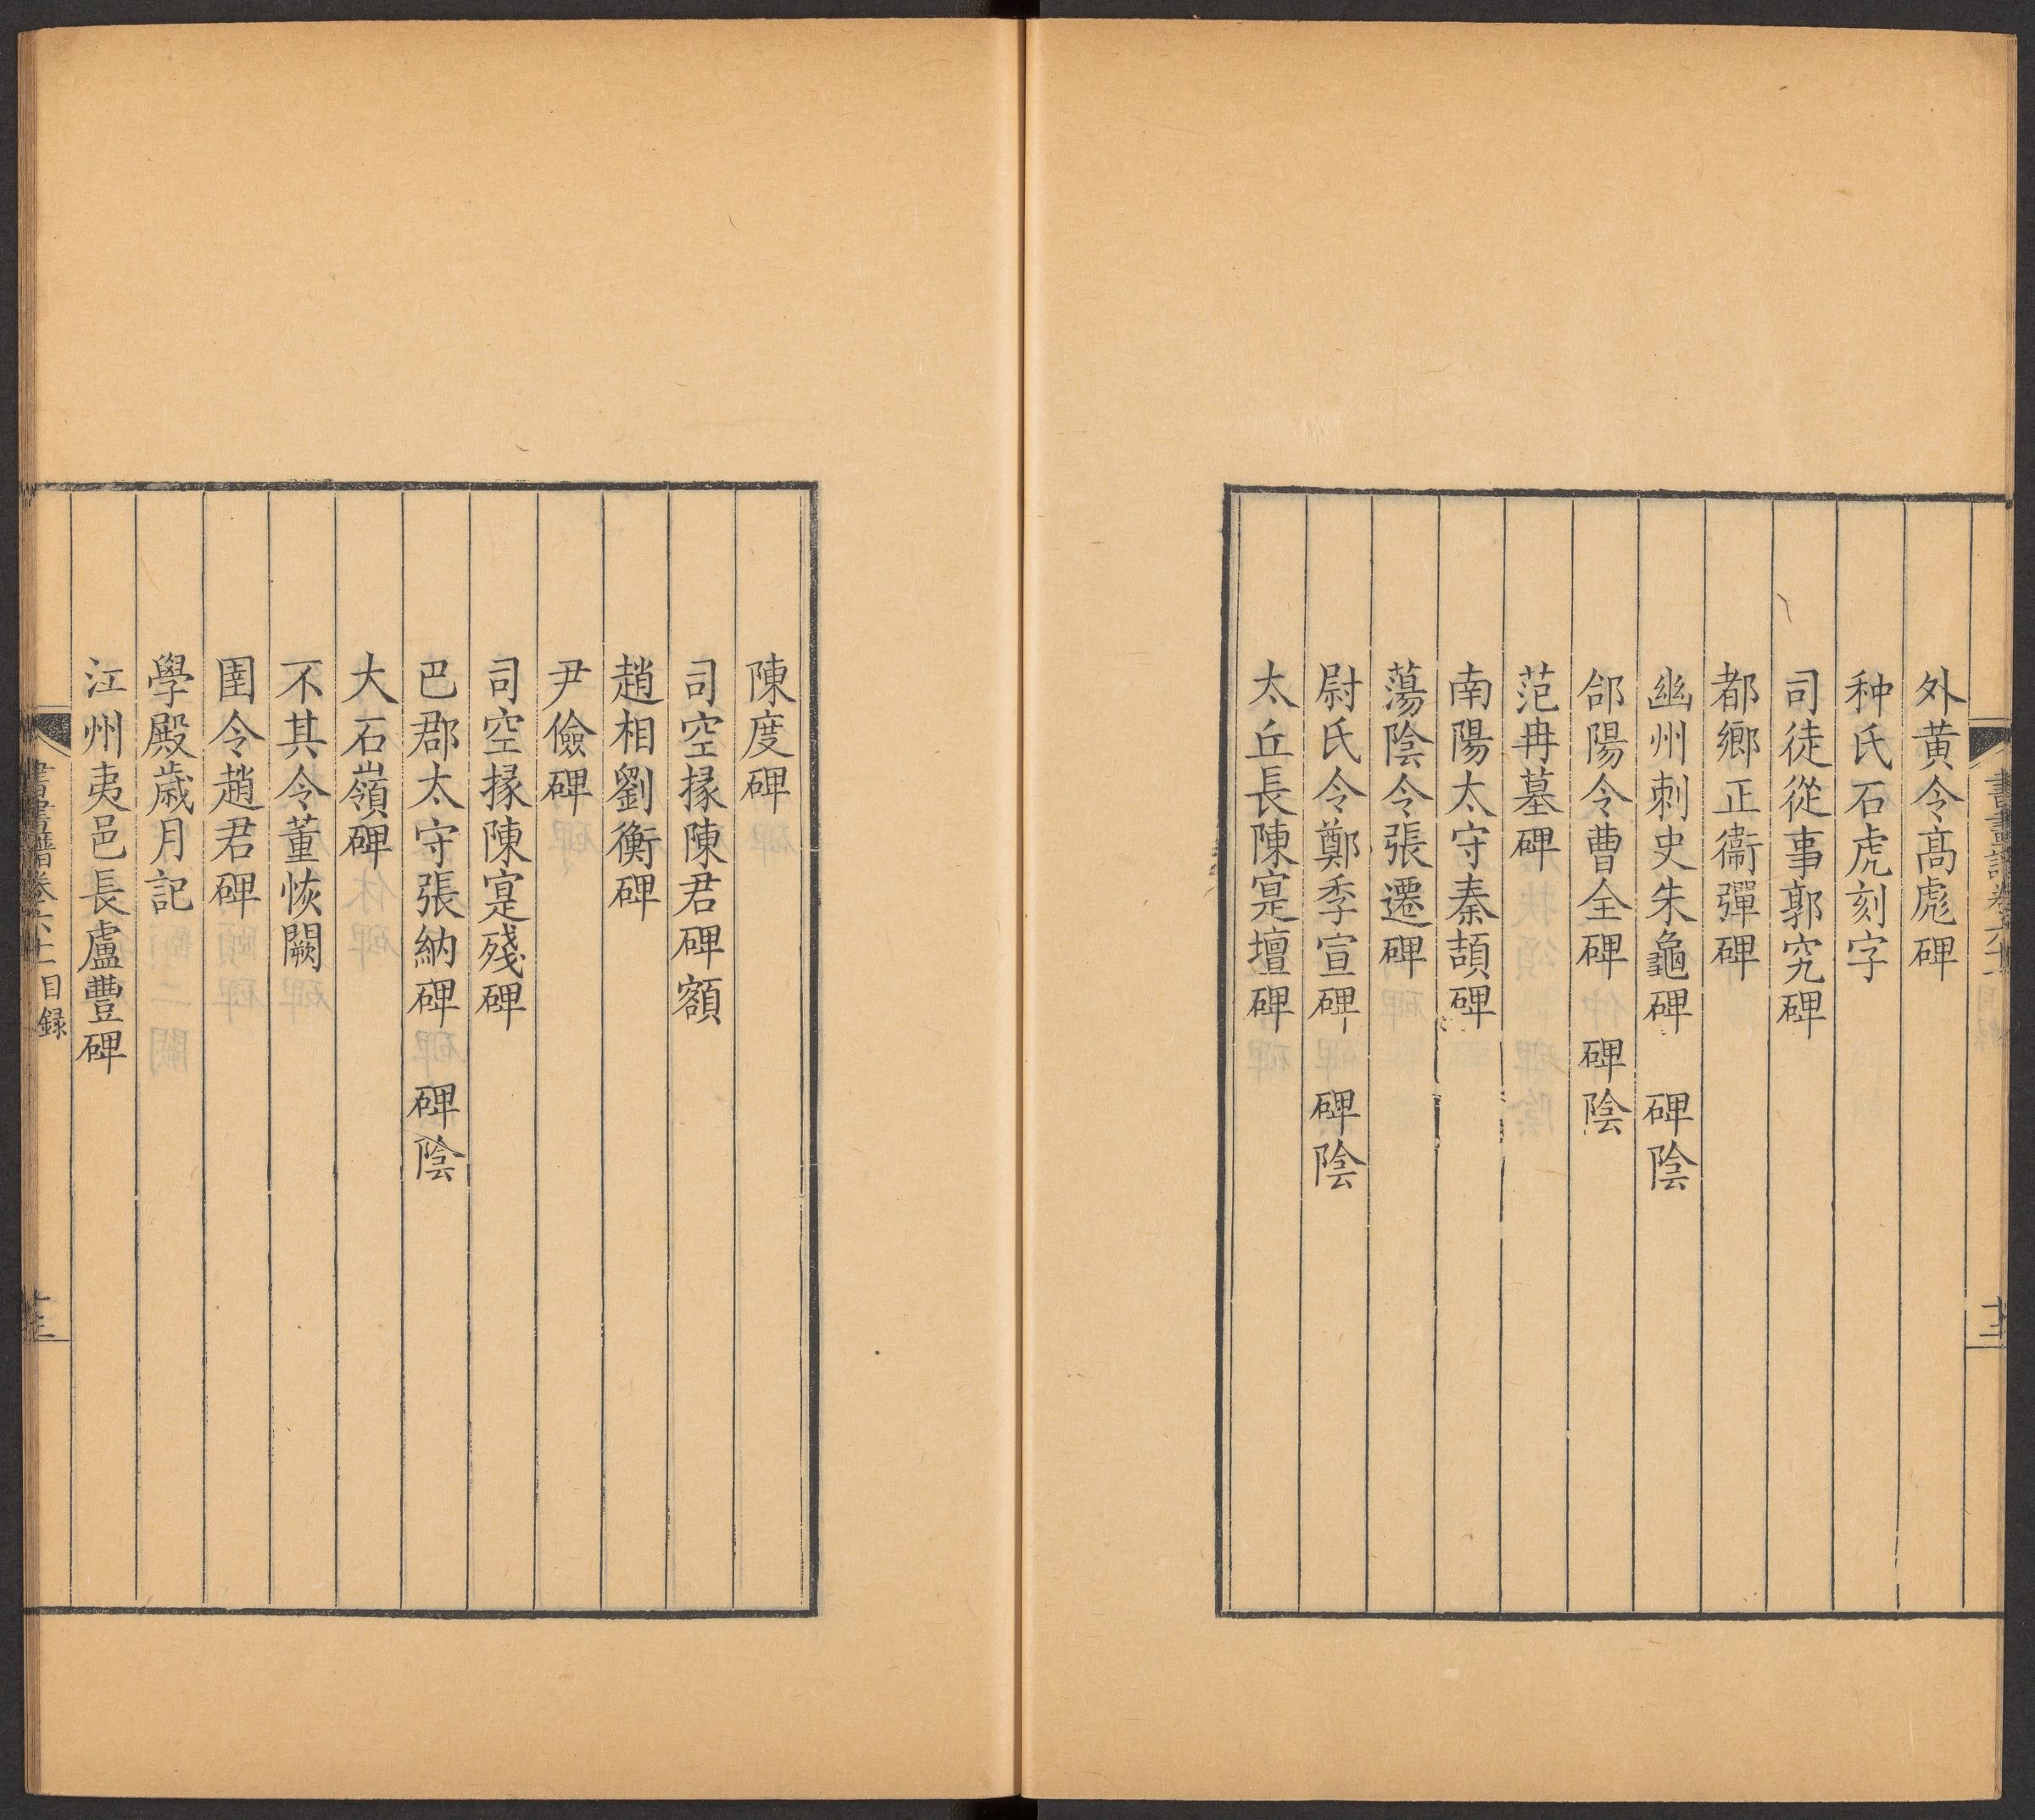 外黄令高彪碑
种氏石虎刻字
司徒從事郭究碑
都鄉正衞彈碑
幽州刺史朱龜碑　碑陰
郃陽令曹全碑　碑陰
范冉墓碑
南陽太守秦頡碑
蕩陰令張遷碑
尉氏令鄭季宣碑　碑陰
太丘長陳寔壇碑
陳度碑
司空掾陳君碑額
趙相劉衡碑
尹儉碑
司空掾陳寔殘碑
巴郡太守張納碑　碑陰
大石嶺碑
不其令董恢闕
圉令趙君碑
學殿歲月記
江州夷邑長盧豐碑
書畫譜卷六十一目録